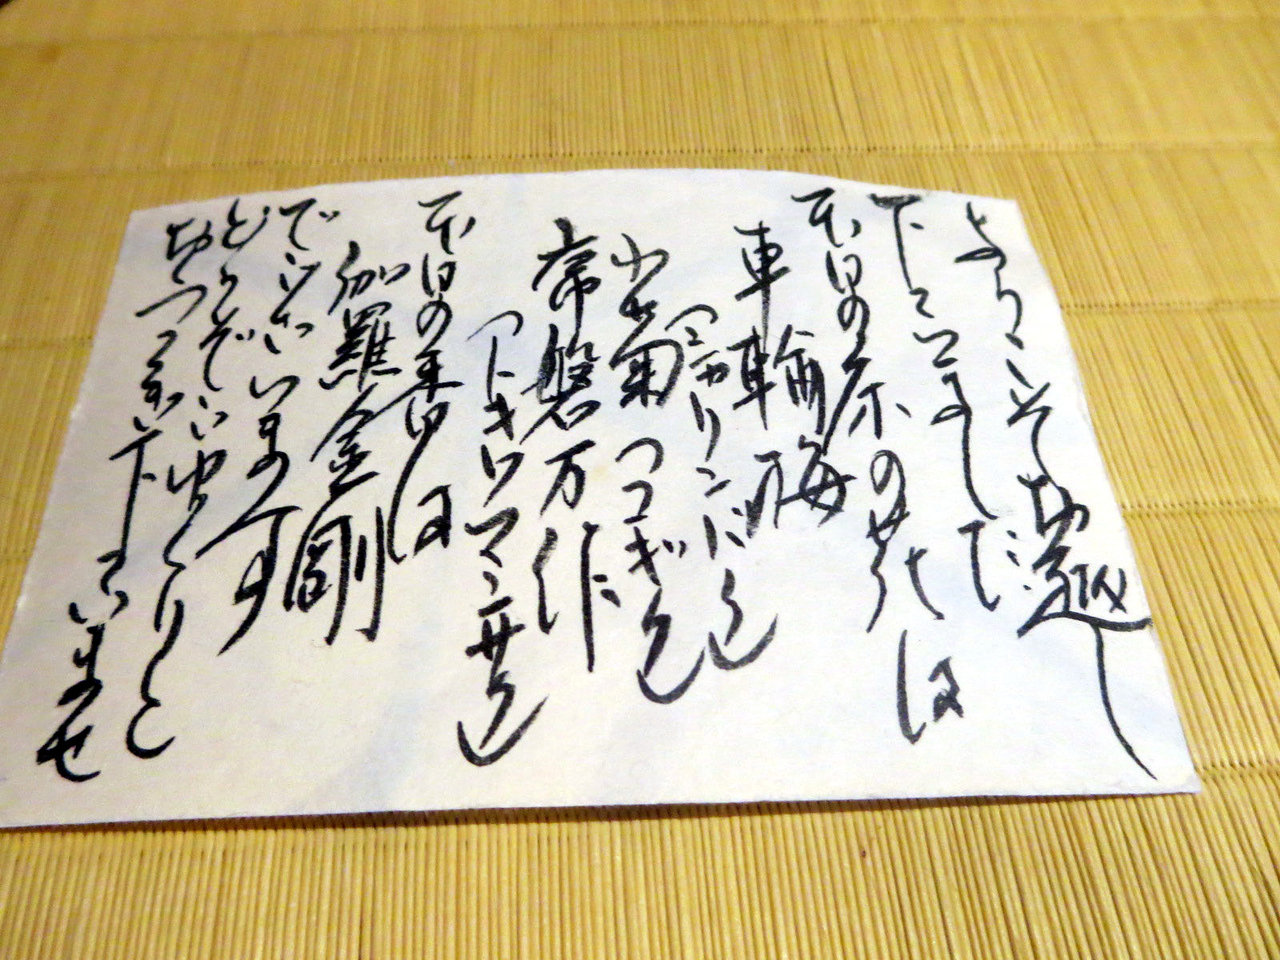 ようこそお越し
下さいました
本日の床の花は
車輪梅
（シャリンバイ）
小菊（コギク）
常磐万作
（トキワマンサク）
本日の香は
伽羅金剛
でございます
どうぞごゆっくりと
おくつろぎ下さいませ